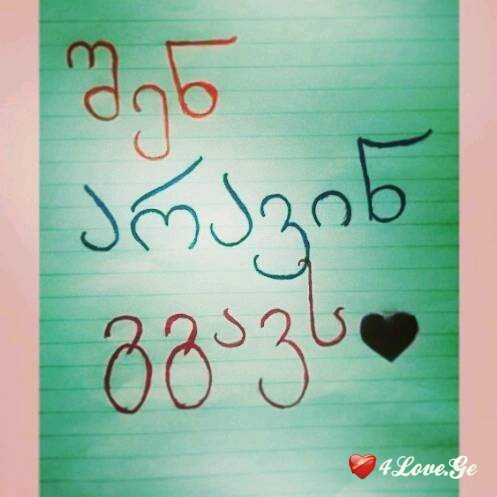 შენ
არავინ
გგავს
4Love.Ge